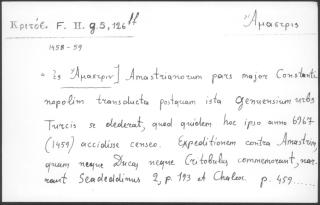 Κριτόβ. F. II. g 5, 126 Η
Ἄμαστρις
1458-59
ἐς Ἄμαστριν] Amastrianorum pars major Constanti
nopolim transducta postquam ista Genuensium urbs
Turcis se dederat, quod quidem hoc ipso anno 6967
(1459) accidisse censeo. Expeditionem contra Amastrim,
quam neque Ducas neque Critobulus commemorant, nar-
rant Seadeddinus 2, p. 193 et Chalco. p. 459......